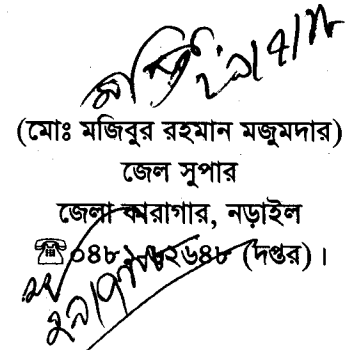 (মোঃ মজিবুর রহমান মজুমদার)
জেল সুপার
জেলা কারাগার, নড়াইল
☎০৪৮১-৬২৬৪৮ (দপ্তর)।